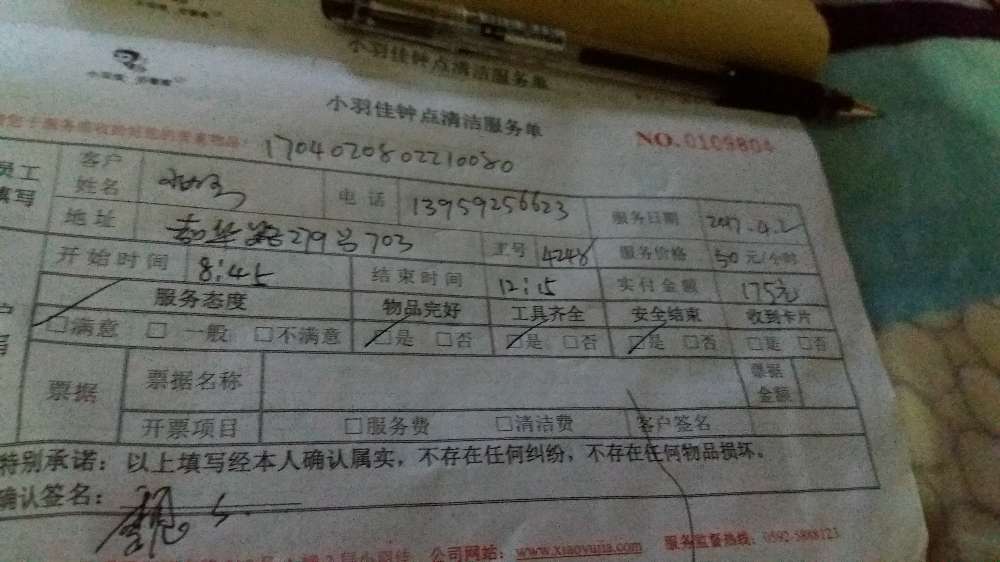 小羽佳钟点清洁服务单
小羽佳钟点清洁服务单
NO.0109804
1704020802210080
员工
填写
客户
姓名
电话 13959256623 服务日期 2017.4.2
地址 279号703 工号 4248 服务价格 50元/小时
开始时间 8:45 结束时间 12:15 实付金额 175元
服务态度 物品完好 工具齐全 安全结束 收到卡片
□满意 □一般 □不满意 □是 □否 □是 □否 □是 □否 □是 □否
票据 票据名称 票据
金额
开票项目 □服务费 □清洁费 客户签名
特别承诺：以上填写经本人确认属实，不存在任何纠纷，不存在任何物品损坏。
确认签名：
公司网站：www.xiaoyujia.com 服务监督热线：0592-5888123